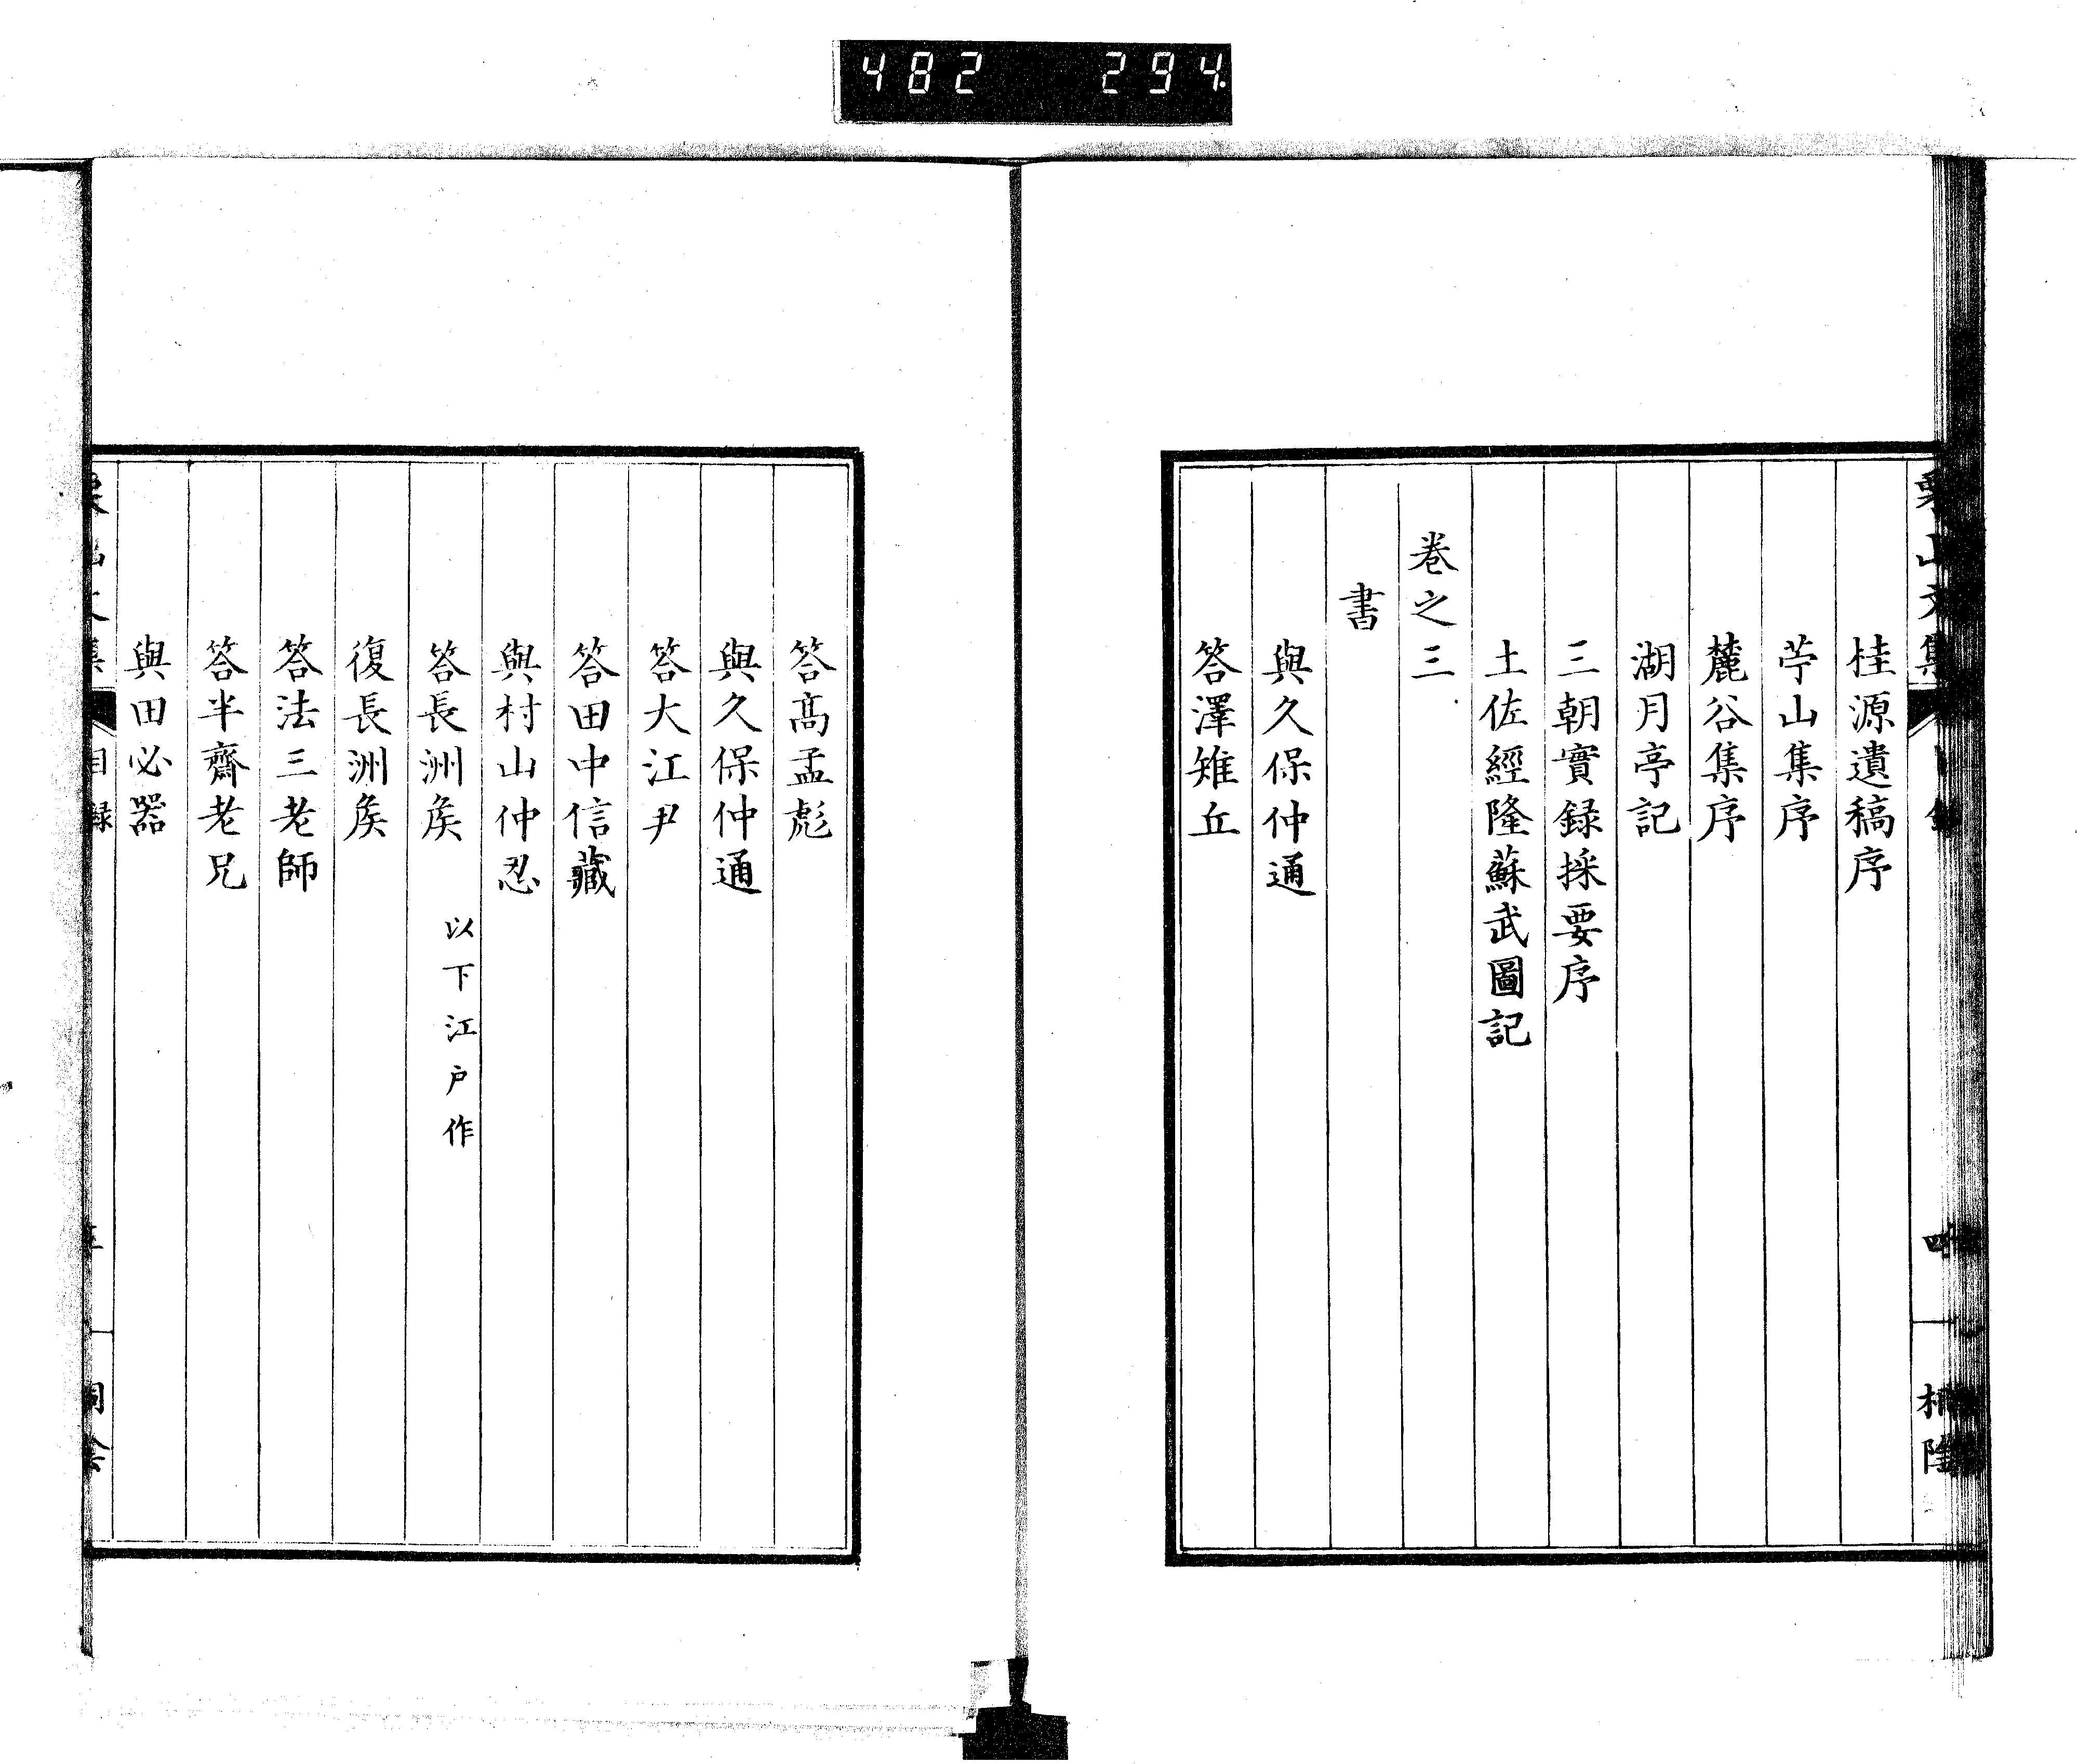 482 294
桂源遺稿序
苧山集序
麓谷集序
湖月亭記
三朝實録採要序
土佐經隆蘇武圖記
卷之三
書
與久保仲通
答澤雉丘
答髙孟彪
與久保仲通
答大江尹
答田中信藏
與村山仲忍
答長洲矦 以下江戸作
復長洲矦
答法三老師
答半齋老兄
與田必器